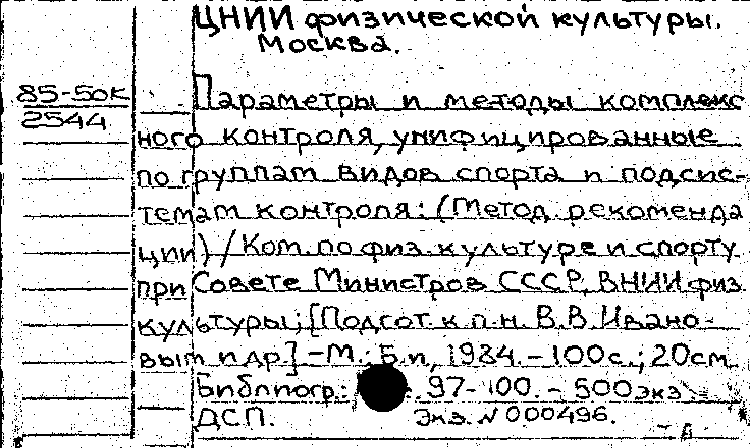 ЦНИИ физической культуры.
Москва.
85-50к
2544
Параметры и методы комплекс
ного контроля, унифицированные
по группам видов спорта и подсис-
темам контроля: (Метод. рекоменда
ции) / Ком. по физ. культуре и спорту
при Совете Министров СССР, ВНИИ физ.
культуры; [Подгот. к.п.н. В.В. Ивано-
вым и др.] - М.: Б.и, 1984. - 100с.; 20см
Библиогр.: 97-100. - 500экз
ДСП. Экз. N 000496.